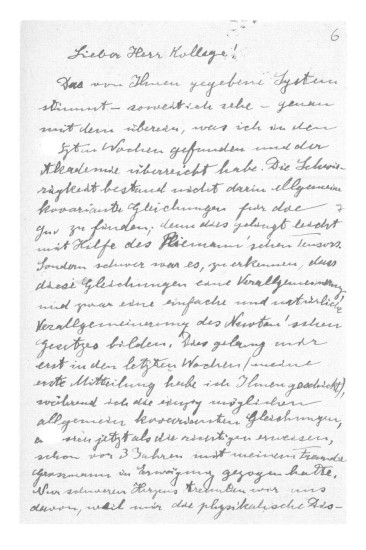 6
Lieber Herr Kollege!
Das von Ihnen gegebene System
stimmt - soweit ich sehe - genau
mit dem überein, was ich in den
letzten Wochen gefunden und der
Akademie überreicht habe. Die Schwie-
rigkeit bestand nicht darin allgemein
kovariante Gleichungen für die
gμν zu finden; denn dies gelingt leicht
mit Hilfe des Riemann'schen Tensors.
Sondern schwer war es, zu erkennen, dass
diese Gleichungen eine Verallgemeinerung
und zwar eine einfache und natürliche
Verallgemeinerung des Newton'schen
Gesetzes bilden. Dies gelang mir
erst in den letzten Wochen (meine
erste Mitteilung habe ich Ihnen geschickt),
während ich die einzig möglichen
allgemein kovarianten Gleichungen,
sich jetzt als die richtigen erweisen,
schon vor 3 Jahren mit meinem Freunde
Grossmann in Erwägung gezogen hatte.
Nur schweren Herzens trennten wir uns
davon, weil mir die physikalische Dis-